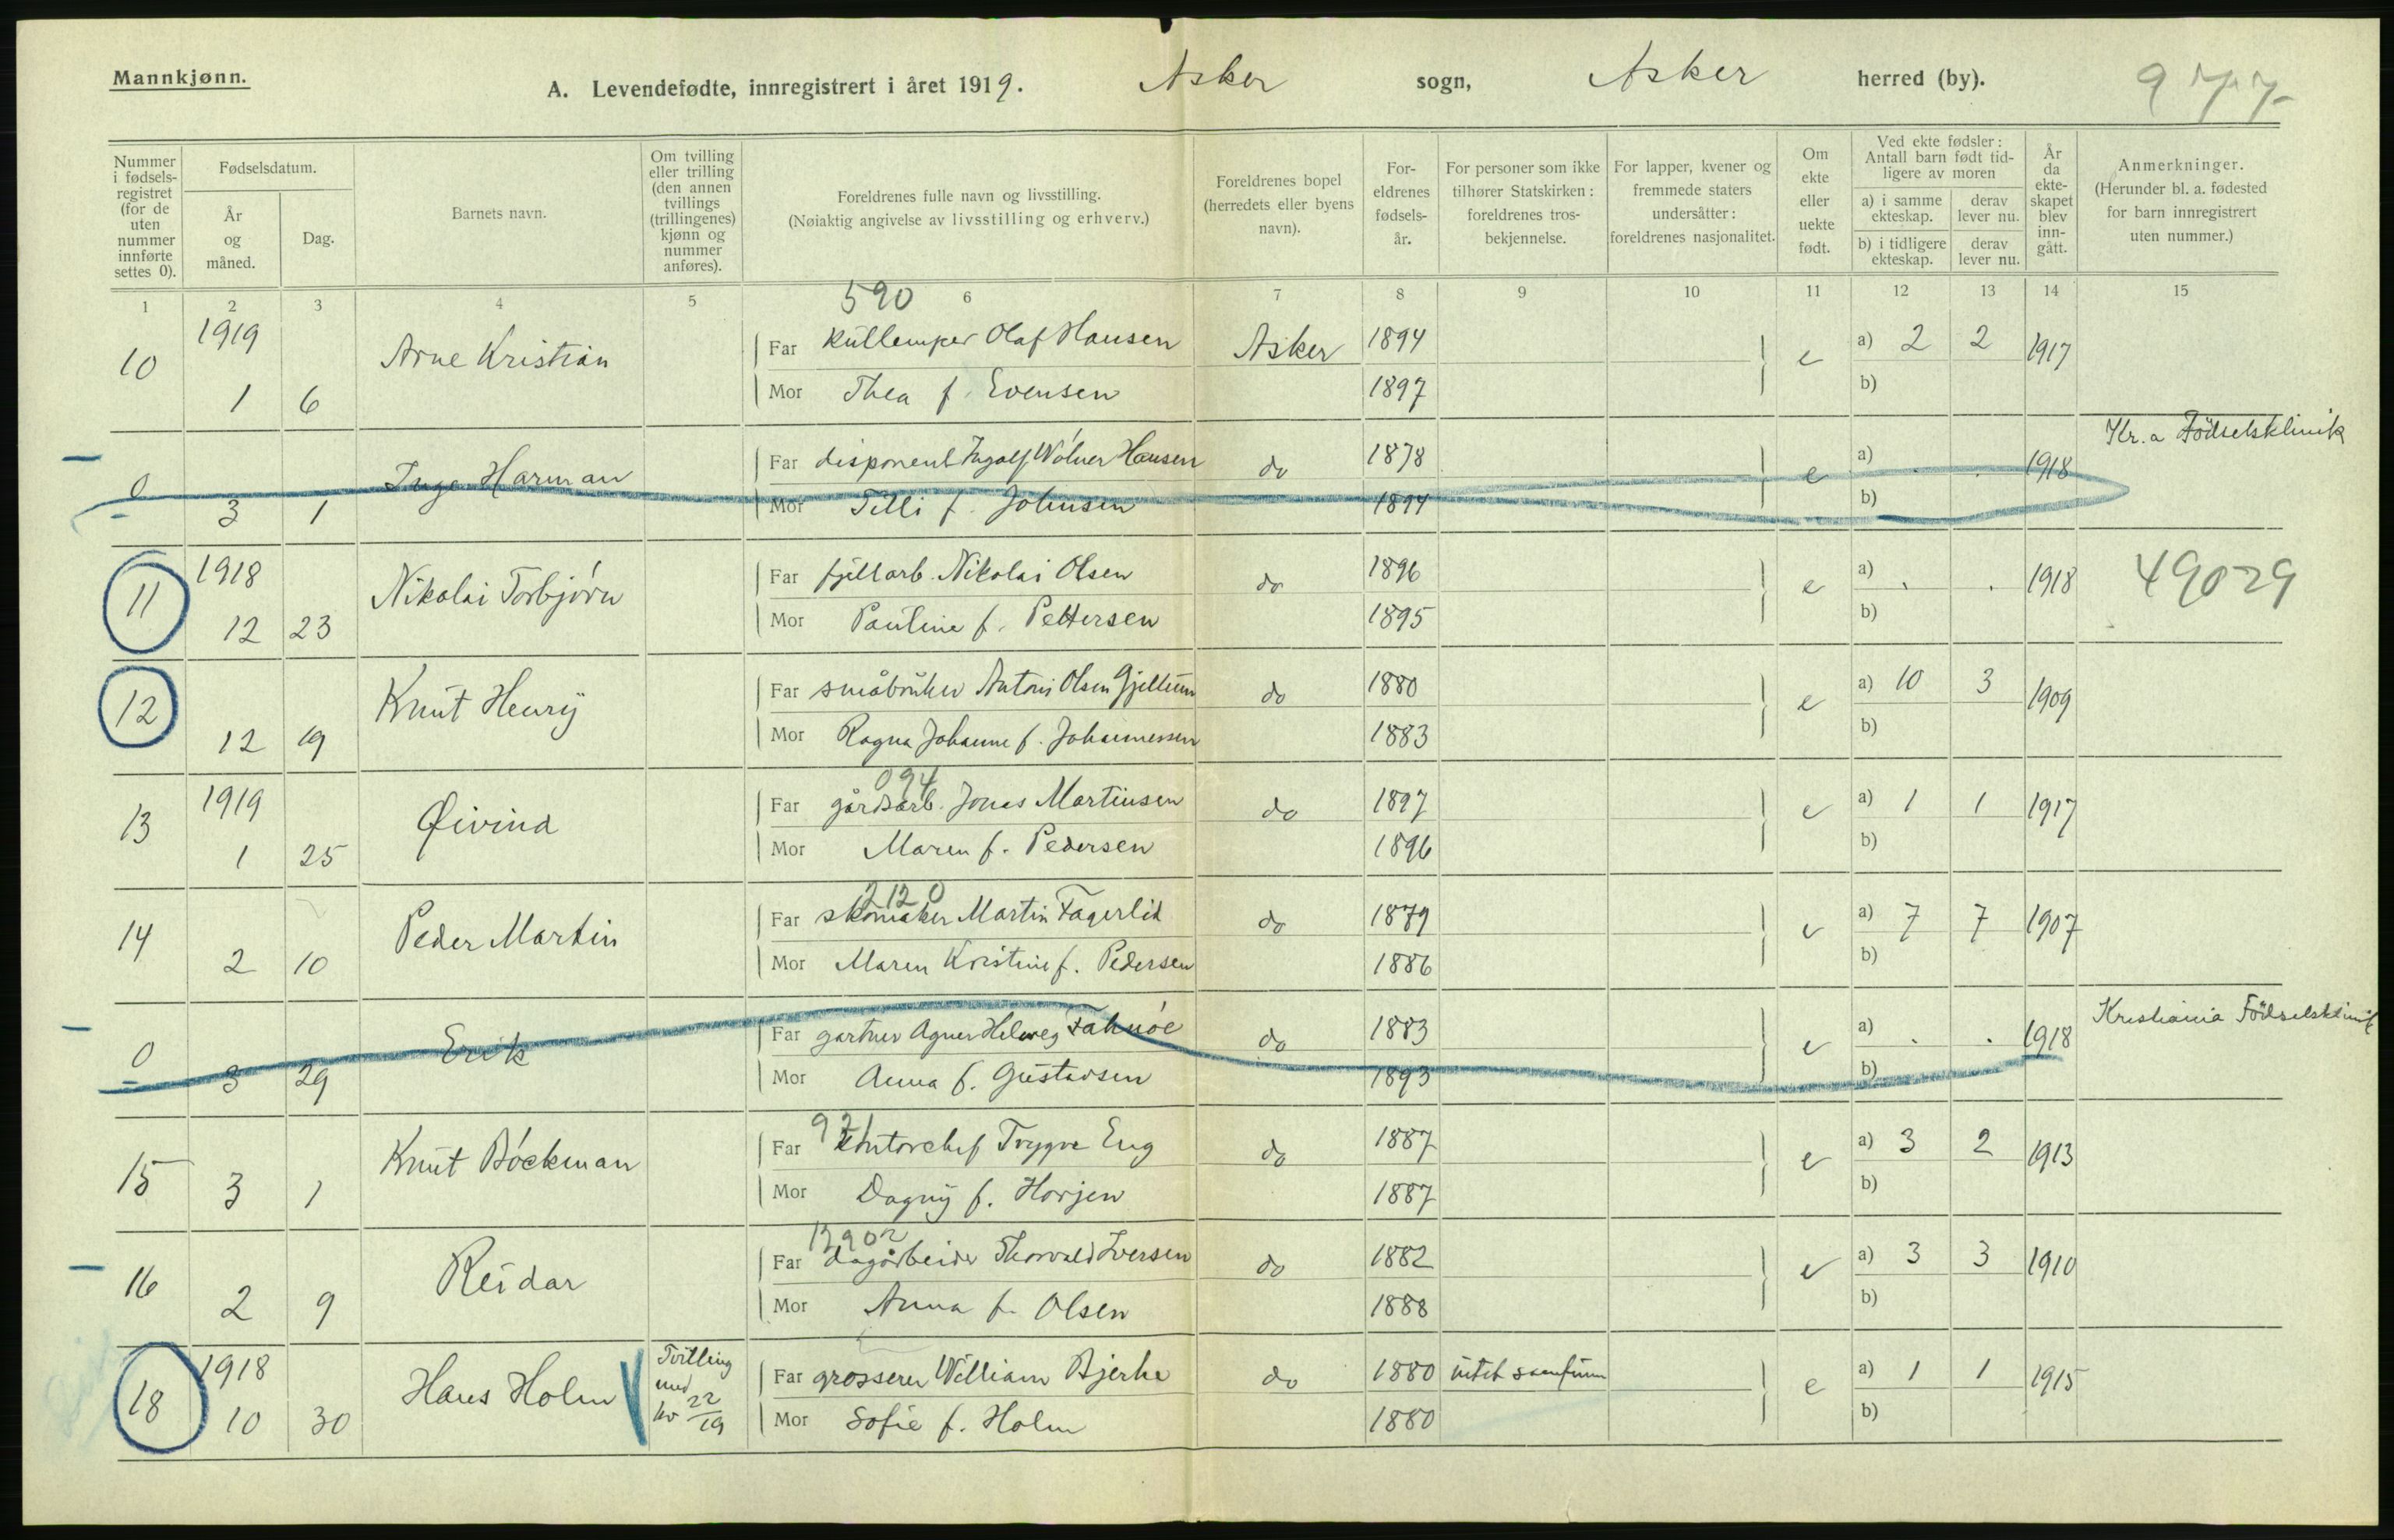 Mannkjønn.
A. Levendefødte, innregistrert i året 1919. Asker sogn, Asker herred (by).
977
Nummer i fødsels-registret (for de uten nummer innførte settes 0).
Fødselsdatum.
År og måned.
Dag.
Barnets navn.
Om tvilling eller trilling (den annen tvillings (trillingenes) kjønn og nummer anføres).
Foreldrenes fulle navn og livsstilling.
(Nøiaktig angivelse av livsstilling og erhverv.)
Foreldrenes bopel (herredets eller byens navn).
For-eldrenes fødsels-år.
For personer som ikke tilhører Statskirken: foreldrenes tros-bekjennelse.
For lapper, kvener og fremmede staters undersåtter: foreldrenes nasjonalitet.
Om ekte eller uekte født.
Ved ekte fødsler: Antall barn født tid-ligere av moren
a) i samme ekteskap.
derav lever nu.
b) i tidligere ekteskap.
derav lever nu.
År da ekte-skapet blev inn-gått.
Anmerkninger.
(Herunder bl. a. fødested for barn innregistrert uten nummer.)
1 2 3 4 5 6 7 8 9 10 11 12 13 14 15
590
10 1919 1 6 Arne Kristian Far Olaf Hansen Asker 1894 e a) 2 2 1917
Mor Thea f. Evensen 1897 b)
0 3 1 Inge Harman Far disponent Ingolf Wølner Hansen do 1878 e a) . . 1918 Kr.a Födselsklinik
Mor Tilli f. Johnsen 1894 b)
11 1918 12 23 Nikolai Torbjørn Far fjellarb. Nikolai Olsen do 1896 e a) . . 1918 49029
Mor Pauline f. Pettersen 1895 b)
12 12 19 Knut Henry Far småbruker Anton Olsen Gjellum do 1880 e a) 10 3 1909
Mor Ragna Johanne f. Johannessen 1883 b)
094
13 1919 1 25 Øivind Far gårdsarb. Jonas Martinsen do 1897 e a) 1 1 1917
Mor Maren f. Pedersen 1896 b)
2120
14 2 10 Peder Martin Far skomaker Martin Fagerlid do 1879 e a) 7 7 1907
Mor Maren Kristine f. Pedersen 1886 b)
0 3 29 Erik Far gartner Agner Helweg Fahnøe do 1883 e a) . . 1918 Kristiania Födselsklinik
Mor Anna f. Gustavsen 1893 b)
921
15 3 1 Knut Bøckman Far kontorchef Trygve Eng do 1887 e a) 3 2 1913
Mor Dagny f. Horjen 1887 b)
13902
16 2 9 Reidar Far dagarbeider Thorvald Iversen do 1882 e a) 3 3 1910
Mor Anna f. Olsen 1888 b)
18 1918 10 30 Hans Holm Tvilling med kv 22/19 Far grosserer William Bjerke do 1880 intet samfunn e a) 1 1 1915
Mor Sofie f. Holm 1880 b)